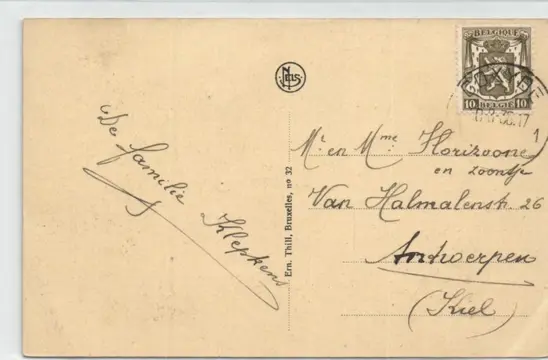 BELGIQUE
10 10
BELGIË
Nels
De familie
Klepkens
Ern. Thill, Bruxelles, nº 32
Mr. en Mme Horizoone
en zoontje
Van Halmalenstr. 26
Antwerpen
(Kiel)
1